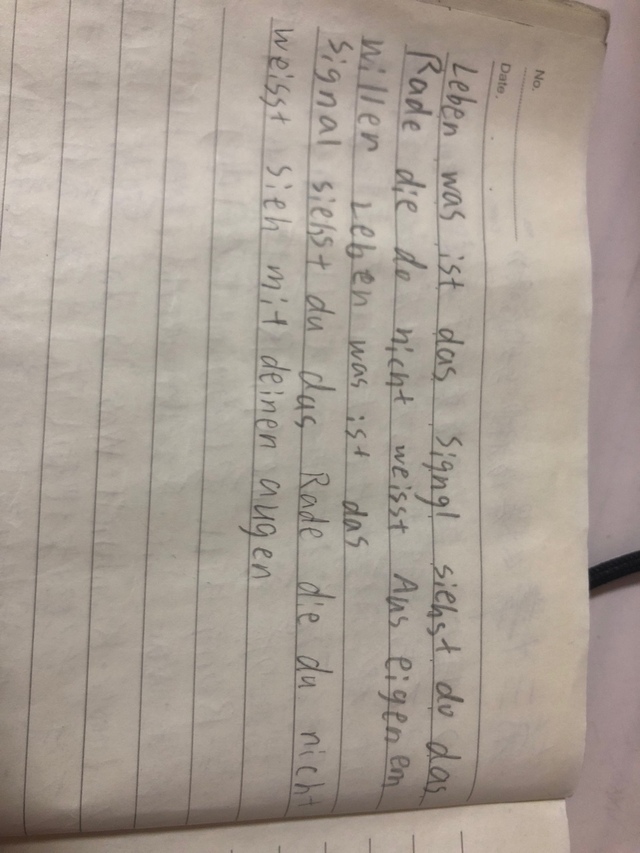 No.
Date.
Leben was ist das signal siehst du das
Rade die du nicht weisst Aus eigenem
willen Leben was ist das
signal siehst du das Rade die du nicht
weisst sieh mit deinen augen